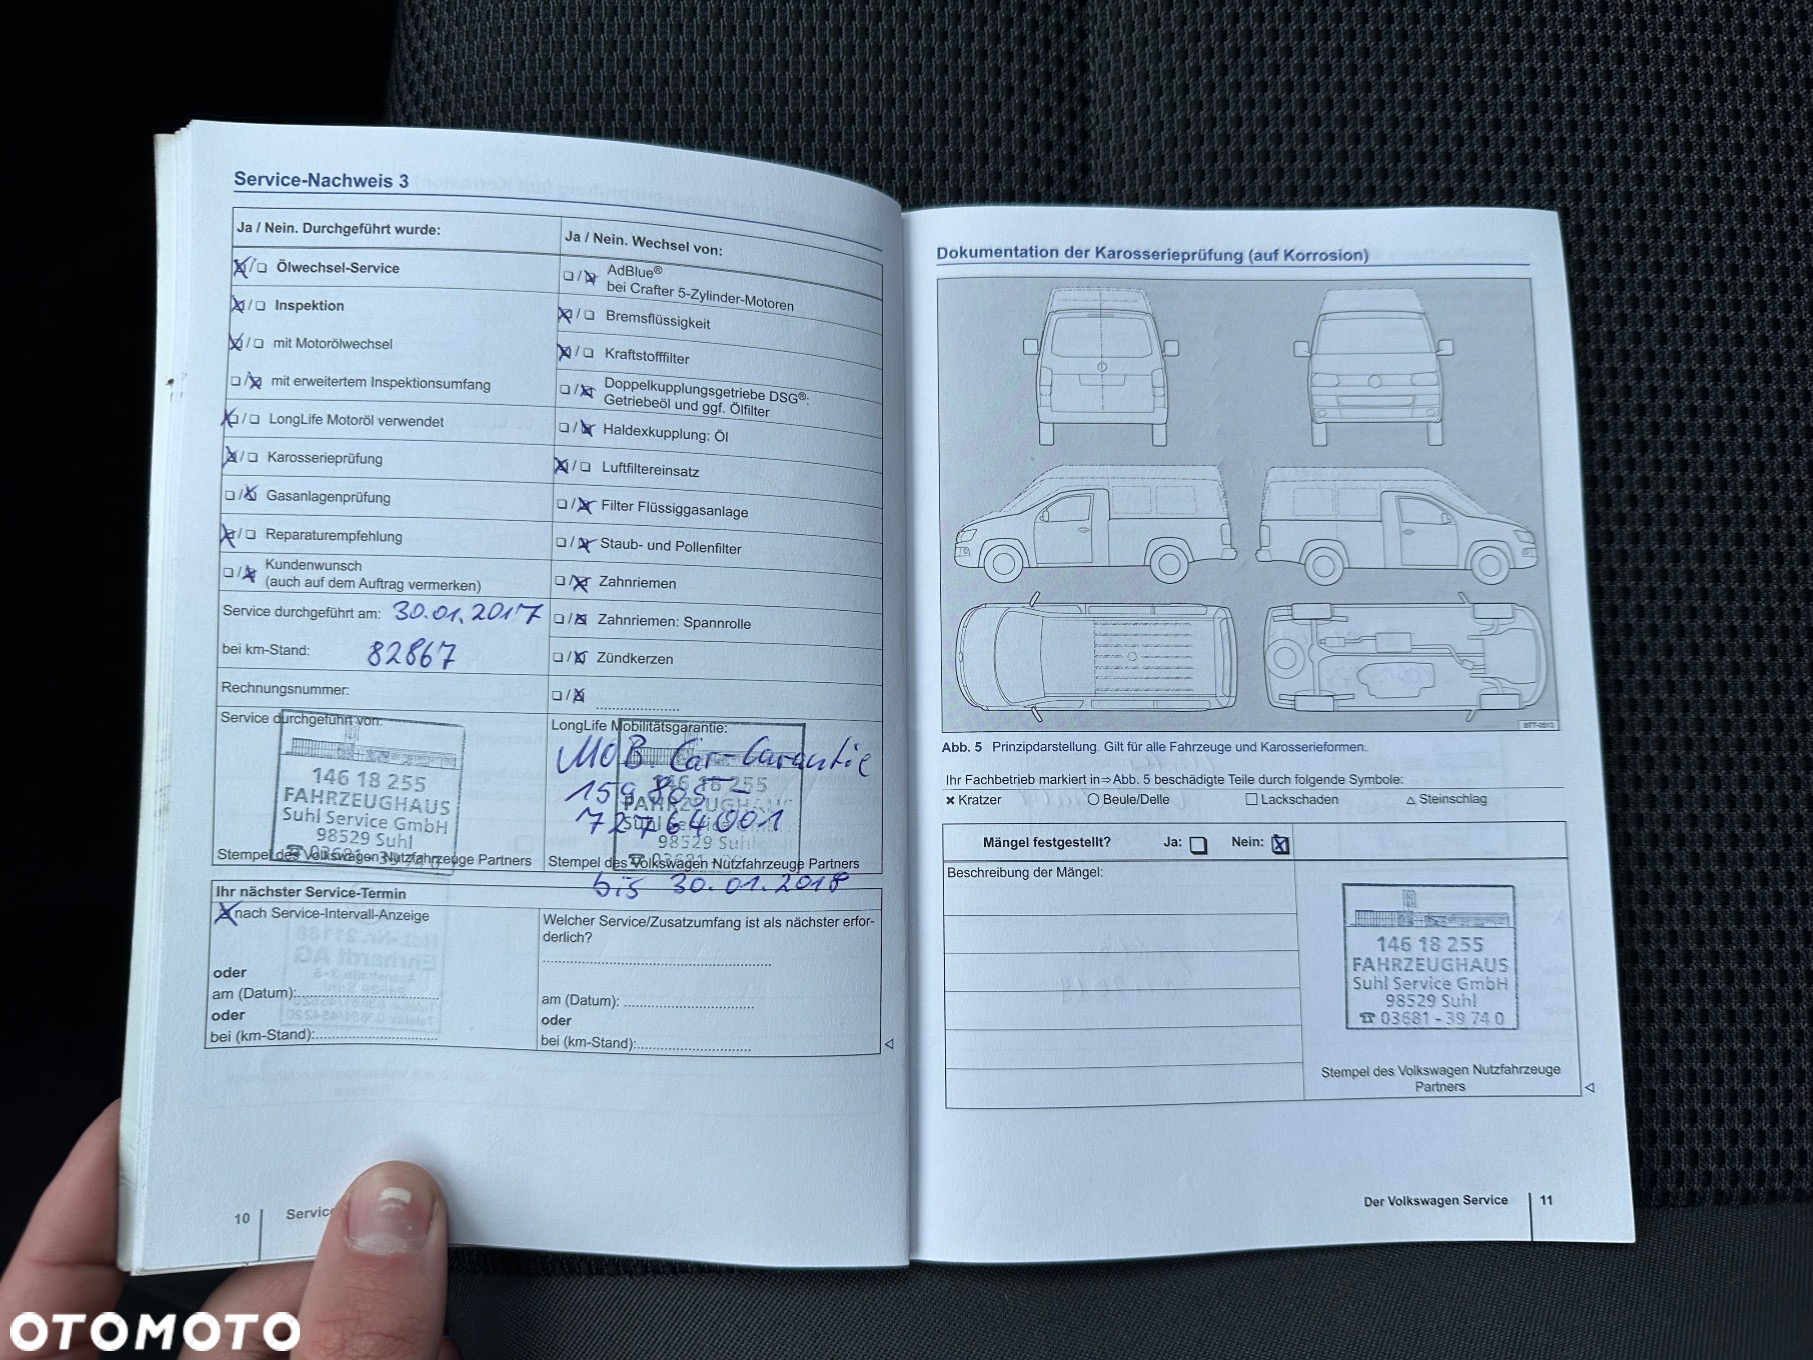 Service-Nachweis 3
Ja / Nein. Durchgeführt wurde:
Ölwechsel-Service
Inspektion
mit Motorölwechsel
mit erweitertem Inspektionsumfang
LongLife Motoröl verwendet
Karosserieprüfung
Gasanlagenprüfung
Reparaturempfehlung
Kundenwunsch
(auch auf dem Auftrag vermerken)
Service durchgeführt am: 30.01.2017
bei km-Stand: 82867
Rechnungsnummer:
Service durchgeführt von:
146 18 255
FAHRZEUGHAUS
Suhl Service GmbH
98529 Suhl
☎ 03681 - 39 74 0
Stempel des Volkswagen Nutzfahrzeuge Partners
Ja / Nein. Wechsel von:
AdBlue®
bei Crafter 5-Zylinder-Motoren
Bremsflüssigkeit
Kraftstofffilter
Doppelkupplungsgetriebe DSG®:
Getriebeöl und ggf. Ölfilter
Haldexkupplung: Öl
Luftfiltereinsatz
Filter Flüssiggasanlage
Staub- und Pollenfilter
Zahnriemen
Zahnriemen: Spannrolle
Zündkerzen
LongLife Mobilitätsgarantie:
MOB. Car-Garantie
159805-
72764001
146 18 255
FAHRZEUGHAUS
98529 Suhl
Stempel des Volkswagen Nutzfahrzeuge Partners
bis 30.01.2018
Ihr nächster Service-Termin
nach Service-Intervall-Anzeige
oder
am (Datum):
oder
bei (km-Stand):
Welcher Service/Zusatzumfang ist als nächster erfor-
derlich?
am (Datum):
oder
bei (km-Stand):
10
Dokumentation der Karosserieprüfung (auf Korrosion)
BTT-0513
Abb. 5 Prinzipdarstellung. Gilt für alle Fahrzeuge und Karosserieformen.
Ihr Fachbetrieb markiert in ⇒ Abb. 5 beschädigte Teile durch folgende Symbole:
× Kratzer ○ Beule/Delle □ Lackschaden △ Steinschlag
Mängel festgestellt? Ja: Nein:
Beschreibung der Mängel:
146 18 255
FAHRZEUGHAUS
Suhl Service GmbH
98529 Suhl
☎ 03681 - 39 74 0
Stempel des Volkswagen Nutzfahrzeuge
Partners
Der Volkswagen Service 11
OTOMOTO